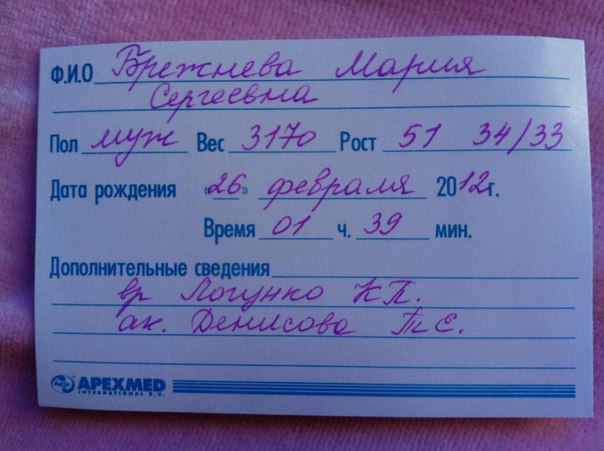 Ф.И.О Брежнева Мария
Сергеевна
Пол муж Вес 3170 Рост 51 34/33
Дата рождения «26» февраля 2012г.
Время 01 ч. 39 мин.
Дополнительные сведения
вр Логунко К.П.
ак. Денисова Т.Е.
APEXMED
INTERNATIONAL B.V.